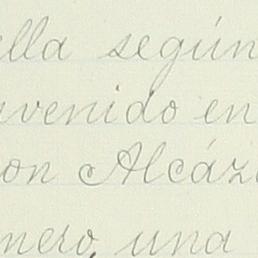 ella según
nvenido en
on Alcáza
nero, una